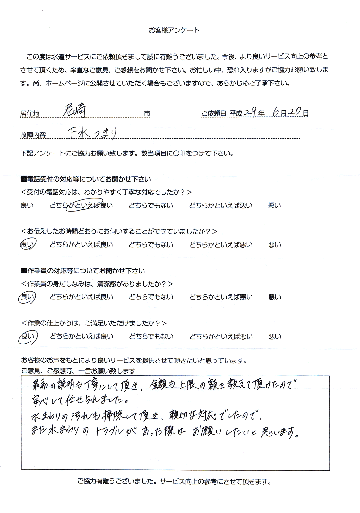 お客様アンケート
この度は水道サービスにご依頼頂きまして誠に有難うございました。今後、より良いサービス向上の参考と
させて頂くため、率直なご意見、ご感想をお聞かせ下さい。お忙しい中、恐れ入りますがご協力お願い致しま
す。尚、ホームページに公開させていただく場合もございますので、あらかじめご了承下さい。
居住地 尼崎 市 ご依頼日 平成 29年 6月 27日
内容 下水つまり
下記アンケートにご協力お願い致します。該当項目に○印をつけて下さい。
■電話受付の対応等についてお聞かせ下さい
<受付の電話対応は、わかりやすく丁寧な対応でしたか?>
良い どちらかといえば良い どちらでもない どちらかといえば悪い 悪い
<お伝えしたお時間どおりにお伺いすることができていましたか?>
良い どちらかといえば良い どちらでもない どちらかといえば悪い 悪い
■作業員の対応等についてお聞かせ下さい
<作業員の身だしなみは、清潔感がありましたか?>
良い どちらかといえば良い どちらでもない どちらかといえば悪い 悪い
<作業の仕上がりは、ご満足いただけましたか?>
良い どちらかといえば良い どちらでもない どちらかといえば悪い 悪い
お客様のお声をもとにより良いサービスを提供させて頂きたいと思っています。
ご意見、ご感想等、一言お願い致します
事前の説明も丁寧にして頂き、金額の上限の額を教えて頂けたので
安心して任せられました。
水まわりの汚れも掃除して頂き、親切な対応でしたので、
また水まわりのトラブルがあった際は お願いしたいと思います。
ご協力有難うございました。サービス向上の参考にさせて頂きます。